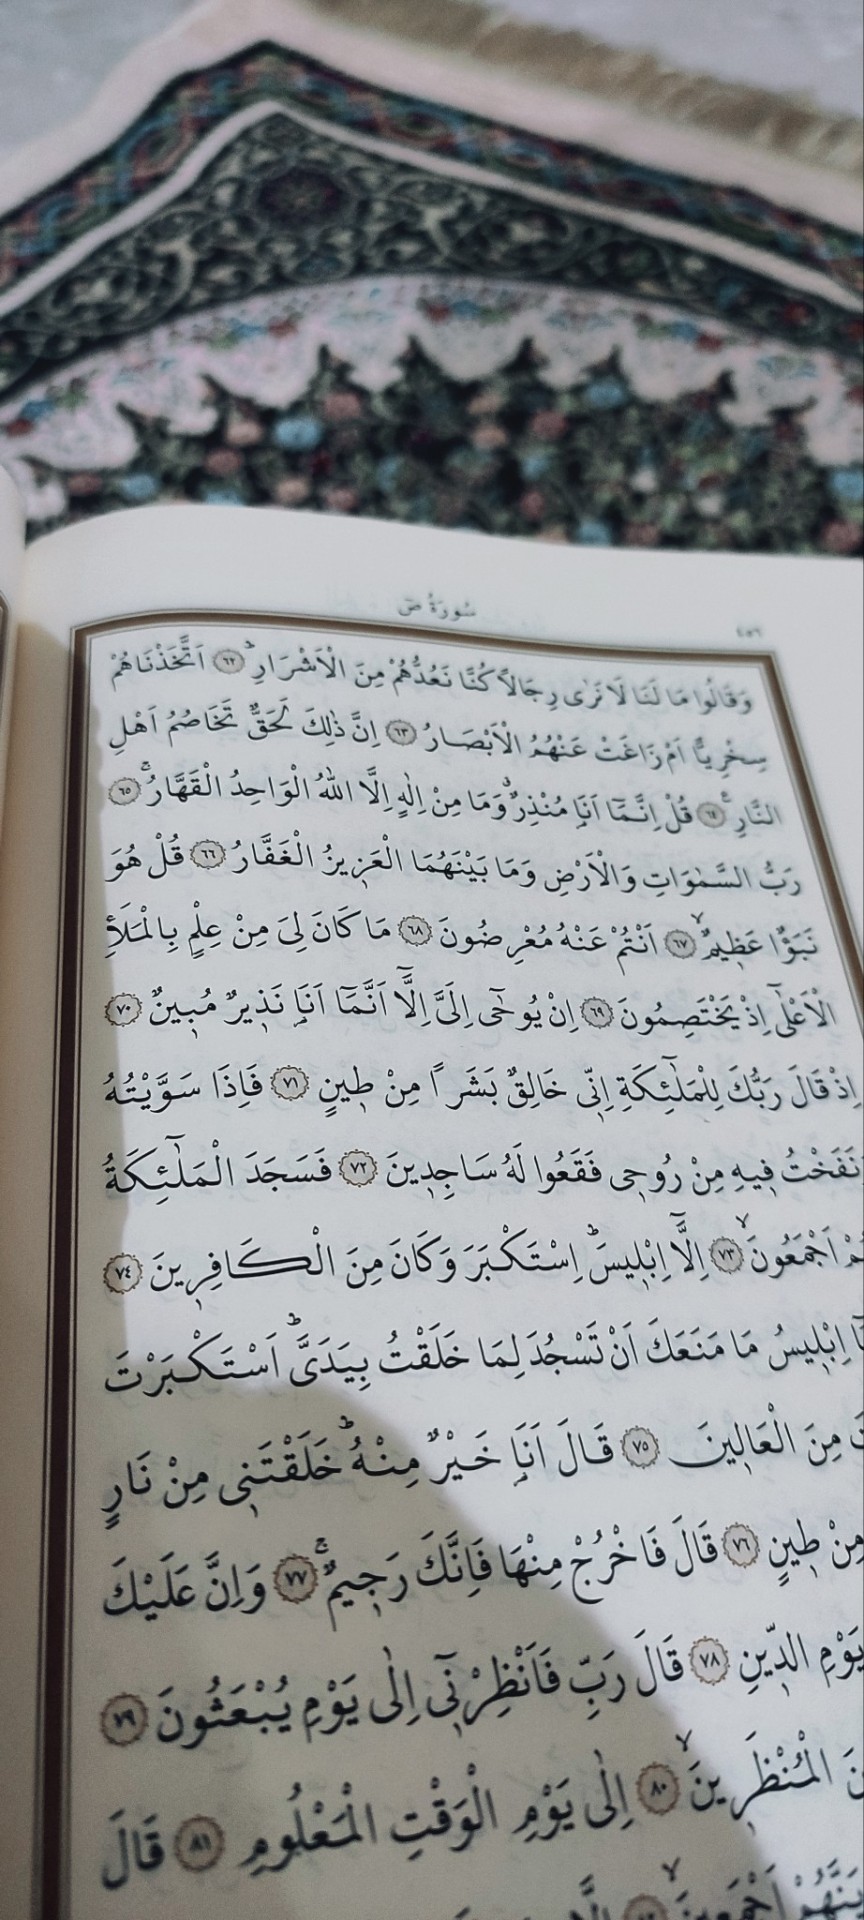 سُورَةُ صٓ
٤٥٦
وَقَالُوا مَا لَنَا لَا نَرٰى رِجَالًا كُنَّا نَعُدُّهُمْ مِنَ الْاَشْرَارِۜ ﴿٦٢﴾ اَتَّخَذْنَاهُمْ
سِخْرِيًّا اَمْ زَاغَتْ عَنْهُمُ الْاَبْصَارُ ﴿٦٣﴾ اِنَّ ذٰلِكَ لَحَقٌّ تَخَاصُمُ اَهْلِ
النَّارِ۟ ﴿٦٤﴾ قُلْ اِنَّمَٓا اَنَا۬ مُنْذِرٌۗ وَمَا مِنْ اِلٰهٍ اِلَّا اللّٰهُ الْوَاحِدُ الْقَهَّارُۚ ﴿٦٥﴾
رَبُّ السَّمٰوَاتِ وَالْاَرْضِ وَمَا بَيْنَهُمَا الْعَز۪يزُ الْغَفَّارُ ﴿٦٦﴾ قُلْ هُوَ
نَبَؤٌ۬ا عَظ۪يمٌۙ ﴿٦٧﴾ اَنْتُمْ عَنْهُ مُعْرِضُونَ ﴿٦٨﴾ مَا كَانَ لِيَ مِنْ عِلْمٍ بِالْمَلَأِ
الْاَعْلٰٓى اِذْ يَخْتَصِمُونَ ﴿٦٩﴾ اِنْ يُوحٰٓى اِلَيَّ اِلَّٓا اَنَّمَٓا اَنَا۬ نَذ۪يرٌ مُب۪ينٌ ﴿٧٠﴾
اِذْ قَالَ رَبُّكَ لِلْمَلٰٓئِكَةِ اِنّ۪ي خَالِقٌ بَشَرًا مِنْ ط۪ينٍ ﴿٧١﴾ فَاِذَا سَوَّيْتُهُ
نَفَخْتُ ف۪يهِ مِنْ رُوح۪ي فَقَعُوا لَهُ سَاجِد۪ينَ ﴿٧٢﴾ فَسَجَدَ الْمَلٰٓئِكَةُ
هُمْ اَجْمَعُونَۙ ﴿٧٣﴾ اِلَّٓا اِبْل۪يسَۜ اِسْتَكْبَرَ وَكَانَ مِنَ الْكَافِر۪ينَ ﴿٧٤﴾
اِبْل۪يسُ مَا مَنَعَكَ اَنْ تَسْجُدَ لِمَا خَلَقْتُ بِيَدَيَّۜ اَسْتَكْبَرْتَ
مِنَ الْعَال۪ينَ ﴿٧٥﴾ قَالَ اَنَا۬ خَيْرٌ مِنْهُۜ خَلَقْتَن۪ي مِنْ نَارٍ
مِنْ ط۪ينٍ ﴿٧٦﴾ قَالَ فَاخْرُجْ مِنْهَا فَاِنَّكَ رَج۪يمٌۚ ﴿٧٧﴾ وَاِنَّ عَلَيْكَ
يَوْمِ الدّ۪ينِ ﴿٧٨﴾ قَالَ رَبِّ فَاَنْظِرْن۪ٓي اِلٰى يَوْمِ يُبْعَثُونَ ﴿٧٩﴾
الْمُنْظَر۪ينَۙ ﴿٨٠﴾ اِلٰى يَوْمِ الْوَقْتِ الْمَعْلُومِ ﴿٨١﴾ قَالَ
اَجْمَع۪ينَۙ